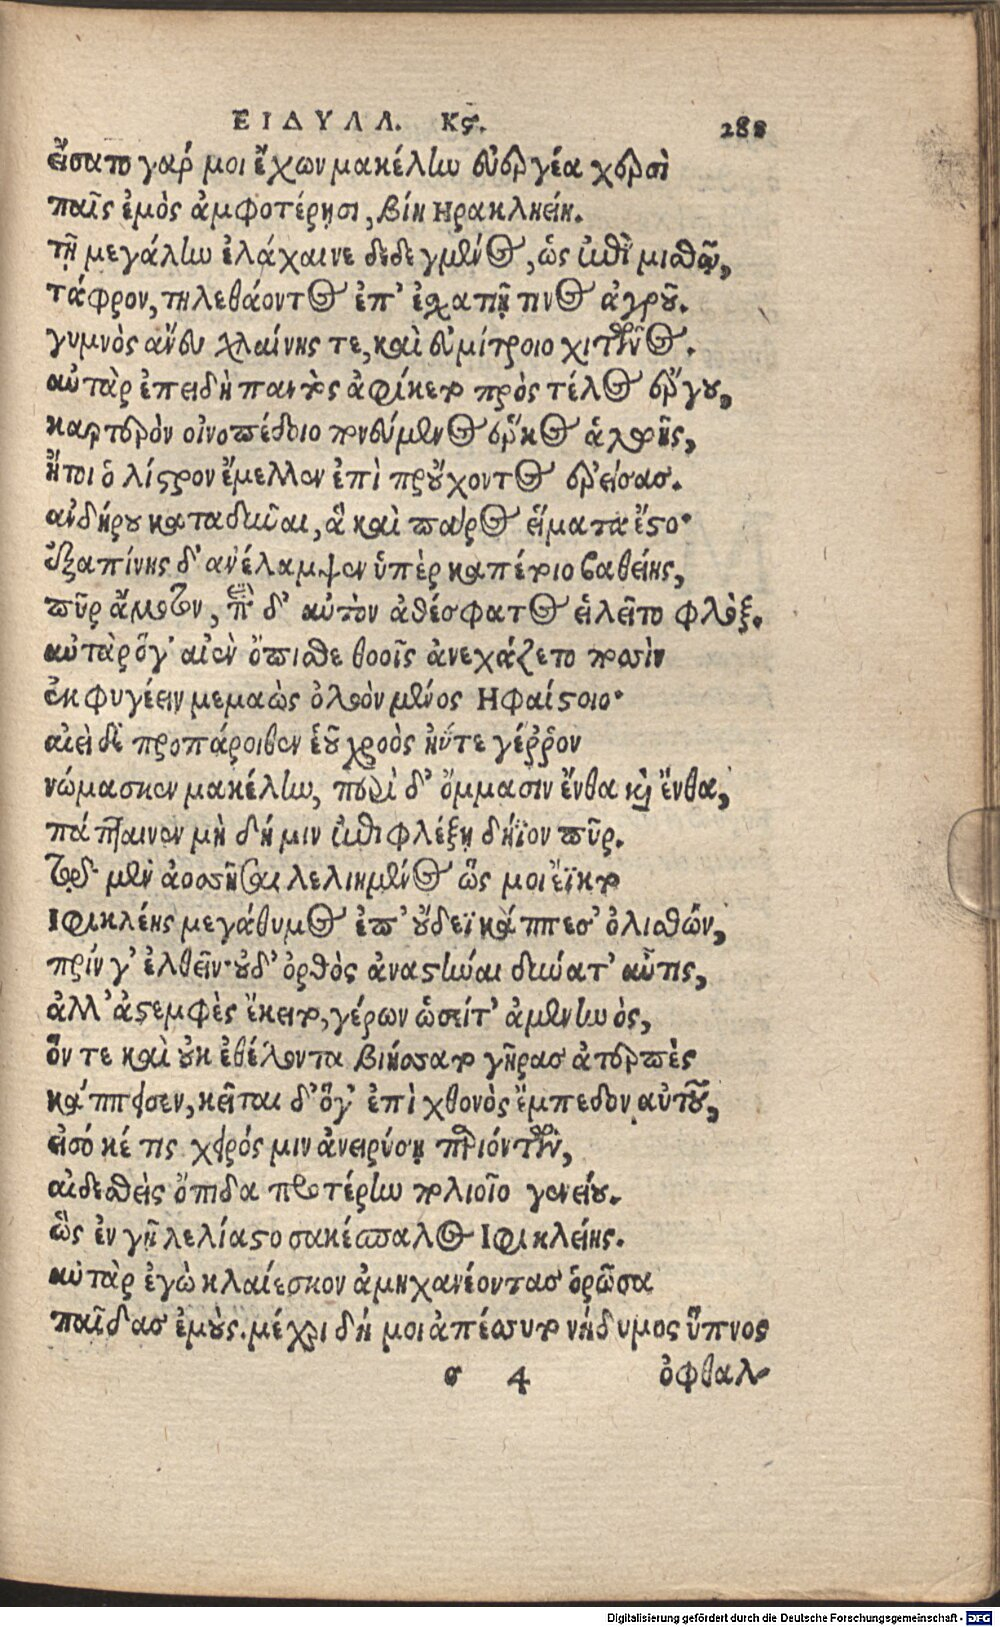 ΕΙΔΥΛΛ. Κϛ. 288
εἴσατο γάρ μοι ἔχων μακέλην εὐεργέα χερσὶ
παῖς ἐμὸς ἀμφοτέρῃσι, βίη Ηρακληείη.
τῇ μεγάλην ἐλάχαινε δεδεγμένος, ὡς ἐπὶ μισθῷ,
τάφρον, τηλεθάοντος ἐπ' ἐσχατιῇ τινος ἀγροῦ.
γυμνὸς ἄνευ χλαίνης τε, καὶ εὐμίτροιο χιτῶνος.
αὐτὰρ ἐπειδὴ παντὸς ἀφίκετο πρὸς τέλος ἔργου,
καρτερὸν οἰνοπέδοιο πονεύμενος ἕρκος ἀλωῆς,
ἤτοι ὁ λίστρον ἔμελλεν ἐπὶ προὔχοντος ἐρείσας.
ανδήρου καταδῦναι, ἃ καὶ πάρος εἵματα ἕστο·
ἐξαπίνης δ' ἀνέλαμψεν ὑπὲρ καπέτοιο βαθείης,
πῦρ ἄμοτον, περὶ δ' αὐτὸν ἀθέσφατος εἱλεῖτο φλόξ.
αὐτὰρ ὅγ' αἰὲν ὄπισθε θοοῖς ἀνεχάζετο ποσὶν
ἐκφυγέειν μεμαὼς ὀλοὸν μένος Ηφαίστοιο·
αἰεὶ δὲ προπάροιθεν ἑοῦ χροὸς ἠΰτε γέῤῥον
νώμασκεν μακέλην, περὶ δ' ὄμμασιν ἔνθα καὶ ἔνθα,
πάπταινεν μὴ δή μιν ἐπιφλέξῃ δήϊον πῦρ.
τῷ μὲν ἀοσσῆσαι λελιημένος ὥς μοι ἔϊκτο
Ιφικλέης μεγάθυμος ἐπ' οὔδεϊ κάππεσ' ὀλισθών,
πρίν γ' ἐλθεῖν· οὐδ' ὀρθὸς ἀναστῆναι δύνατ' αὖτις,
ἀλλ' ἀστεμφὲς ἔκειτο, γέρων ὡσείτ' ἀμενηνὸς,
ὅν τε καὶ οὐκ ἐθέλοντα βιήσατο γῆρας ἀτερπὲς
καππεσέειν, κεῖται δ' ὅγ' ἐπὶ χθονὸς ἔμπεδον αὐτοῦ,
εἰσόκέ τις χειρός μιν ἀνειρύσῃ παριόντων,
αἰδεσθεὶς ὄπιδα προτέρην πολιοῖο γενείου.
ὣς ἐν γῇ λελίαστο σακέσπαλος Ιφικλείης.
αὐτὰρ ἐγὼ κλαίεσκον ἀμηχανέοντας ὁρῶσα
παῖδας ἐμούς. μέχρι δή μοι ἀπέσσυτο νήδυμος ὕπνος
σ 4 ὀφθαλ-
Digitalisierung gefördert durch die Deutsche Forschungsgemeinschaft - DFG